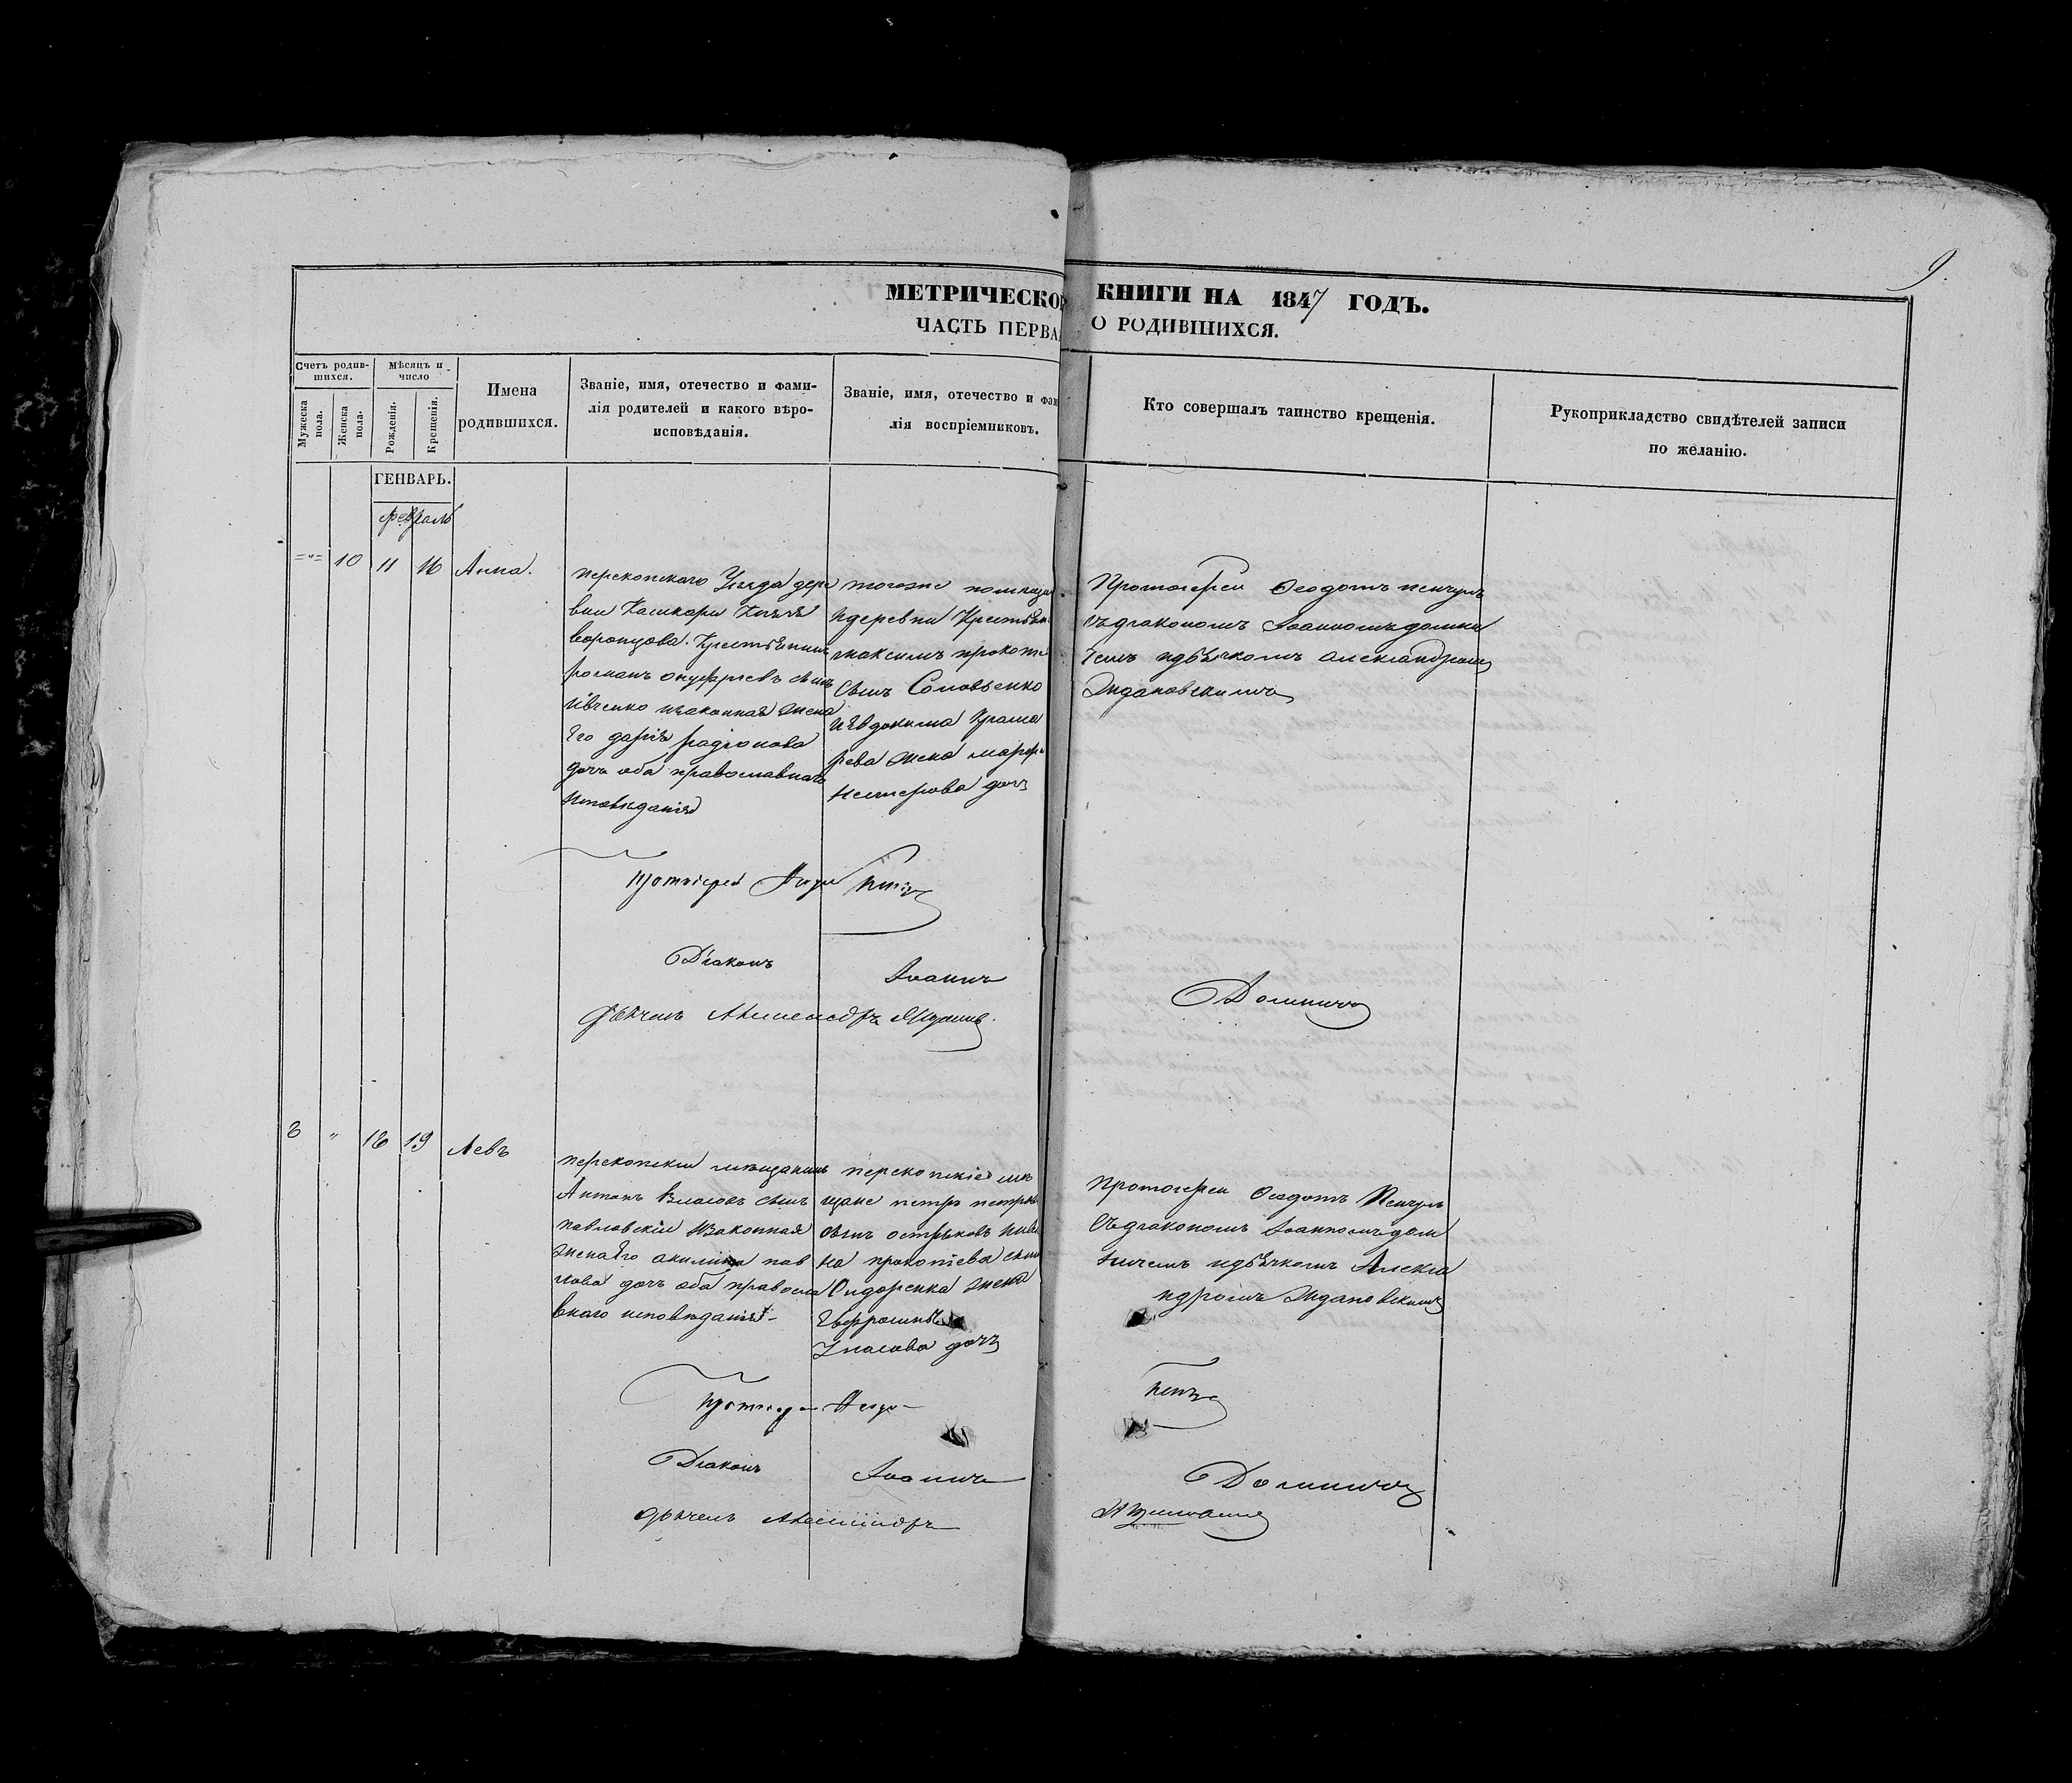 9.
МЕТРИЧЕСКОЙ КНИГИ НА 1847 ГОДЪ.
ЧАСТЬ ПЕРВАЯ О РОДИВШИХСЯ.
Счетъ родив-
шихся.
Мужеска
пола.
Женска
пола.
Мѣсяцъ и
число
Рожденія.
Крещенія.
Имена
родившихся.
Званіе, имя, отечество и фами-
лія родителей и какого вѣро-
исповѣданія.
Званіе, имя, отечество и фам
лія воспріемниковъ.
Кто совершалъ таинство крещенія.
Рукоприкладство свидѣтелей записи
по желанію.
ГЕНВАРЬ.
февраль
="= 10 11 16 Анна.
перекопского Уезда дере
вни Кашкары Князя
воронцова. Крестьянинъ
романъ онуфріевъ сынъ
изаконная жена
Его дарія радіонова
дочь оба православнаго
исповѣданія
тогоже помещи
идеревни Крестьян
максимъ прокоп
сынъ Соловьенко
иЕвдокима
рева жена марфа
нестерова дочь
Протоіерей Феодотъ
съдіакономъ Іоанномъ
идьячкомъ александром
Ждановскимъ
Протоіерей
Діаконъ Іоаннъ
дьячекъ Александръ
8 " 18 19 Левъ
перекопскій мещанинъ
Антонъ Власовъ сынъ
павловскій изаконная
женаЕго акилина пав
лова дочь оба правосла
внаго исповѣданія
перекопскіе ме
щане петръ петров
сынъ остряковъ
на прокопіева сын
Сидоренка жена
Евфросинія
Уласова дочь
протоіерей Феодотъ
Съдіакономъ Іоанномъ
идьячкомъ Алекса
ндромъ Ждановским
Діаконъ Іоаннъ
дьячекъ Александръ